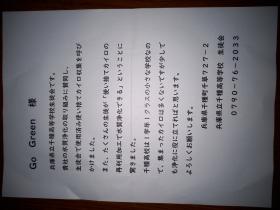 Go Green 様
兵庫県立千種高等学校生徒会です。
貴社の水質浄化の取り組みに賛同し、
生徒会で使用済み使い捨てカイロ収集を呼び
かけました。
また、たくさんの生徒が「使い捨てカイロの
再利用加工で水質浄化できる」ということに
驚きました。
千種高校は1学年1クラスの小さな学校なの
で、集まったカイロは多くないですが少しで
も浄化に役に立てればと思います。
よろしくお願いします。
兵庫県千種町千草727-2
兵庫県立千種高等学校 生徒会
0790-76-2033